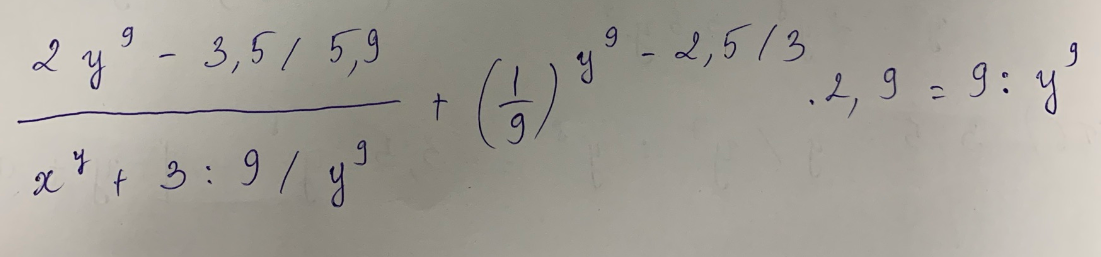 \frac{2y^9 - 3,5 / 5,9}{x^y + 3 : 9 / y^9} + \left(\frac{1}{9}\right)^{y^9 - 2,5 / 3} . 2,9 = 9 : y^9